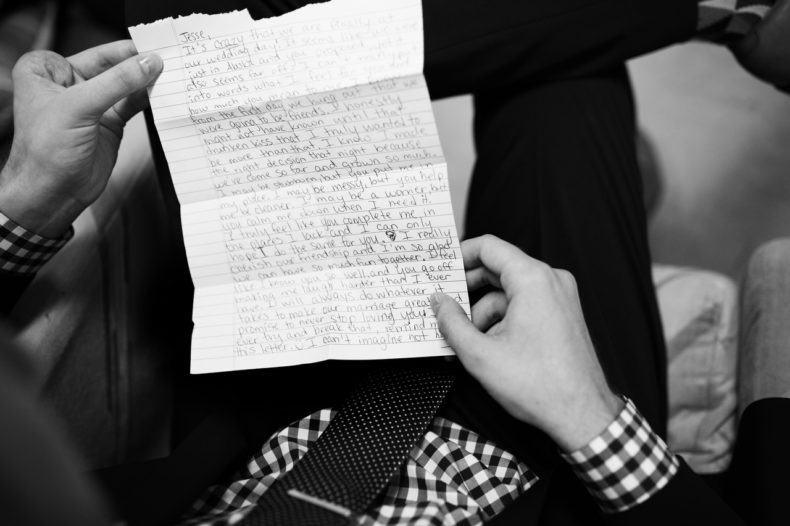 Jesse,
It's crazy that we are finally at
our wedding day! It seems like we were
just in
also seems far off. I can't really put
into words what I feel for you
how much you mean
from the first day we hung out that we
were going to be friends. I honestly
might not have known until that
drunken kiss that I truly wanted to
be more than that. I know I made
the right decision that night because
we've come so far and grown so much.
I may be stubborn but you put me in
my place. I may be messy, but you help
me be cleaner. I may be a worrier, but
you calm me down when I need it.
I truly feel like you complete me in
the areas I lack and I can only
hope I do the same for you. I really
cherish our friendship and I'm so glad
we can have so much fun together. I feel
like I know you so well, and you go off
making me laugh harder than I ever
have. I will always do whatever it
takes to make our marriage great and
promise to never stop loving you. If I
ever try and break that, remind me
this letter. I can't imagine not